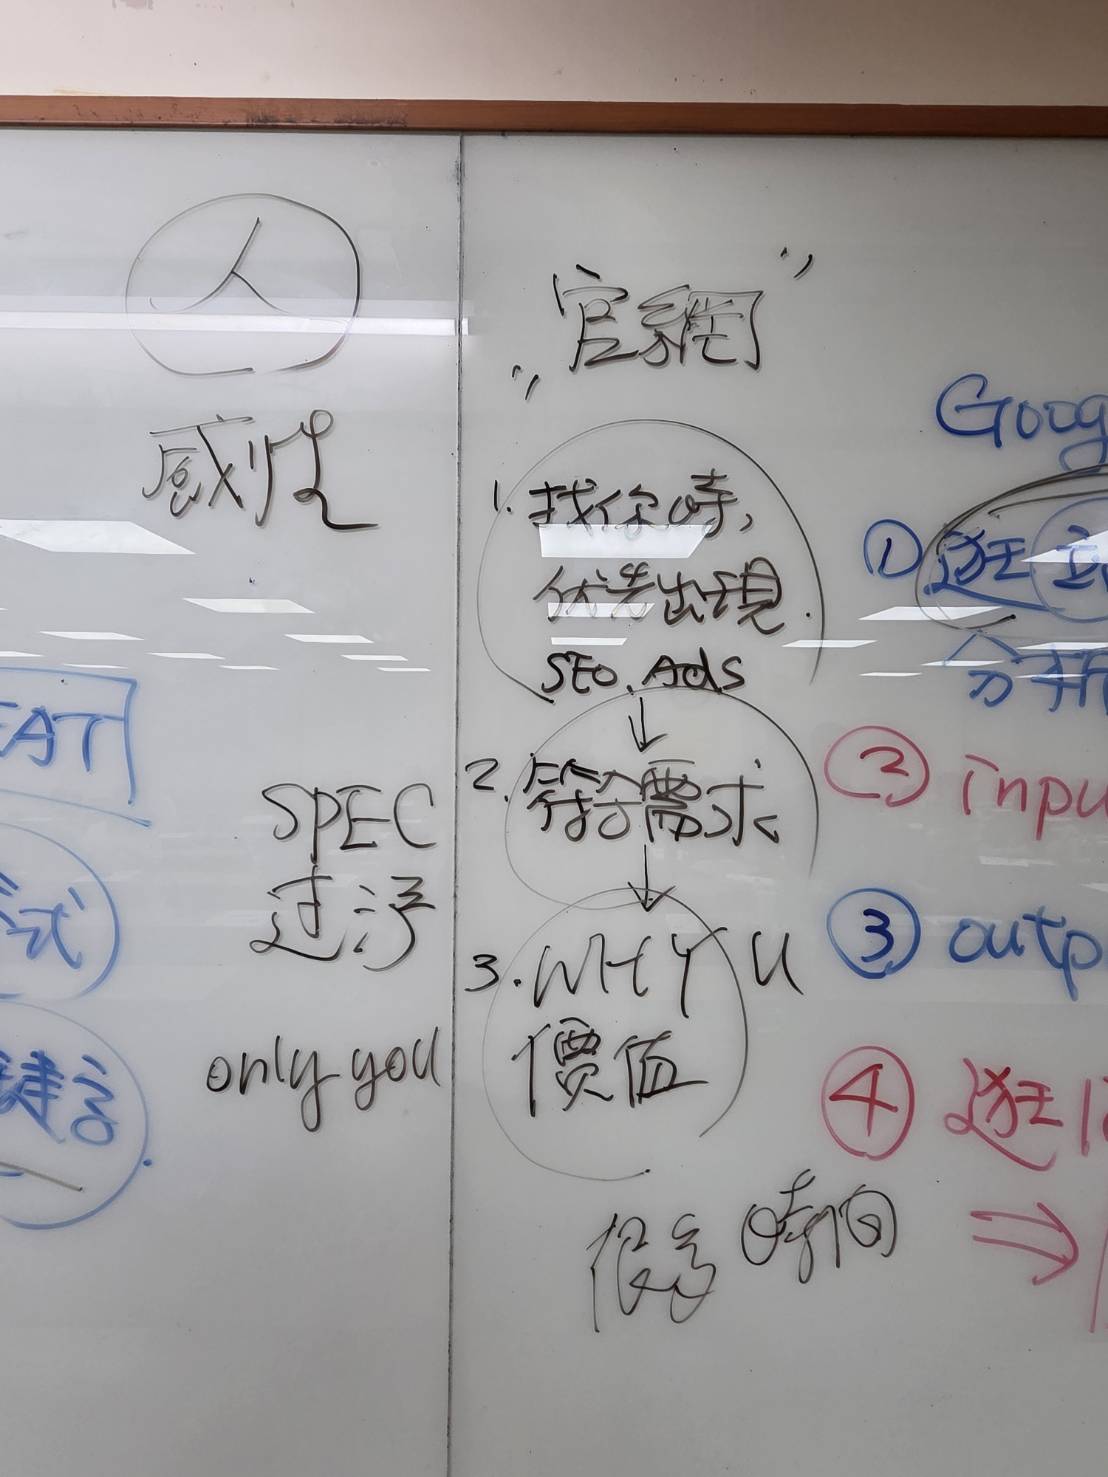 人
感性
EAT
式
SPEC
only you
"官網"
1. 找你時,
優先出現.
SEO. Ads
↓
2. 符合需求
↓
3. WHY U
價值
很多時間
Goog
① 逛
分析
② inpu
③ outp
④ 逛
⇒